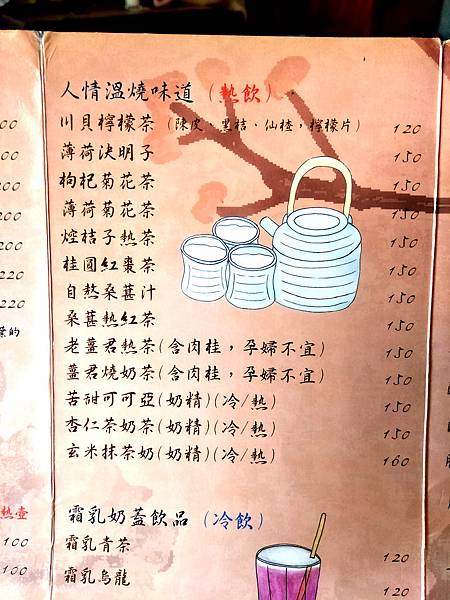 人情溫燒味道（熱飲）
川貝檸檬茶（陳皮、黑桔、仙楂，檸檬片） 120
薄荷決明子 150
枸杞菊花茶 150
薄荷菊花茶 150
焢桔子熱茶 150
桂圓紅棗茶 150
自熬桑葚汁 150
桑葚熱紅茶 150
老薑君熱茶(含肉桂，孕婦不宜) 150
薑君燒奶茶(含肉桂，孕婦不宜) 150
苦甜可可亞(奶精)(冷/熱) 150
杏仁茶奶茶(奶精)(冷/熱) 150
玄米抹茶奶(奶精)(冷/熱) 160
霜乳奶蓋飲品（冷飲）
霜乳青茶 120
霜乳烏龍 120
200
200
220
220
熱壺
100
100